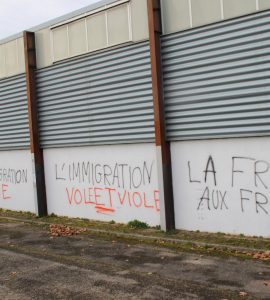 GRATION
E
L'IMMIGRATION
VOLE ET VIOLE
LA FR
AUX FR